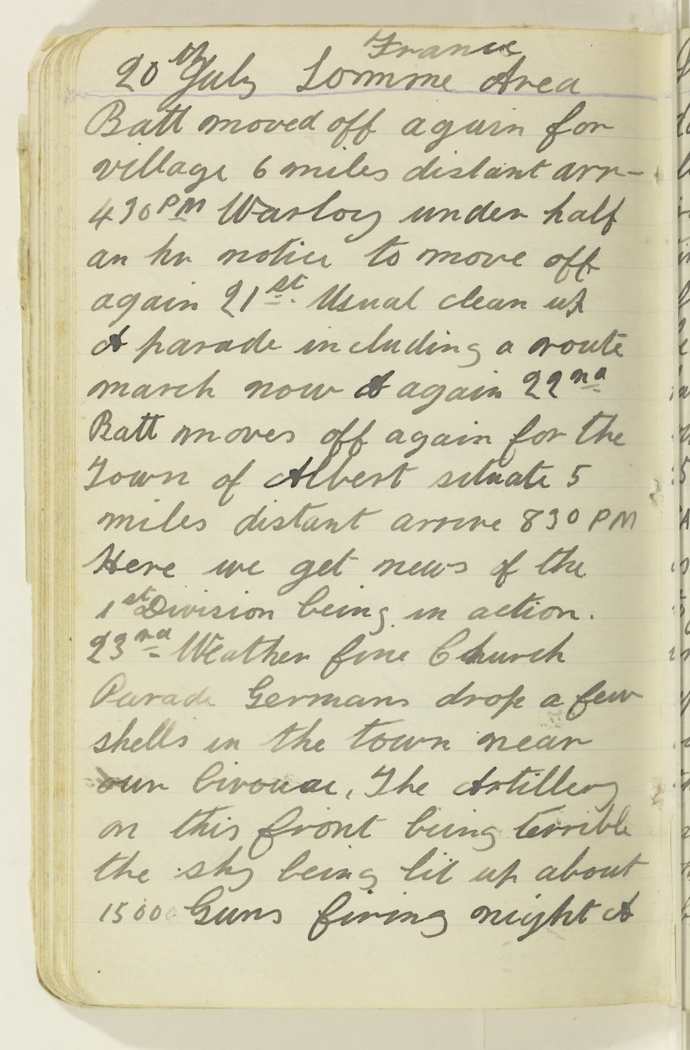 France
20th July Somme Area
Batt moved off again for
village 6 miles distant arr-
430 PM Warloy under half
an hr notice to move off
again 21st. Usual clean up
& parade including a route
march now & again 22nd
Batt moves off again for the
Town of Albert situate 5
miles distant arrive 830 PM
Here we get news of the
1st Division being in action.
23rd Weather fine Church
Parade Germans drop a few
shells in the town near
our bivouac, The Artillery
on this front being terrible
the sky being lit up about
1500 Guns firing night &